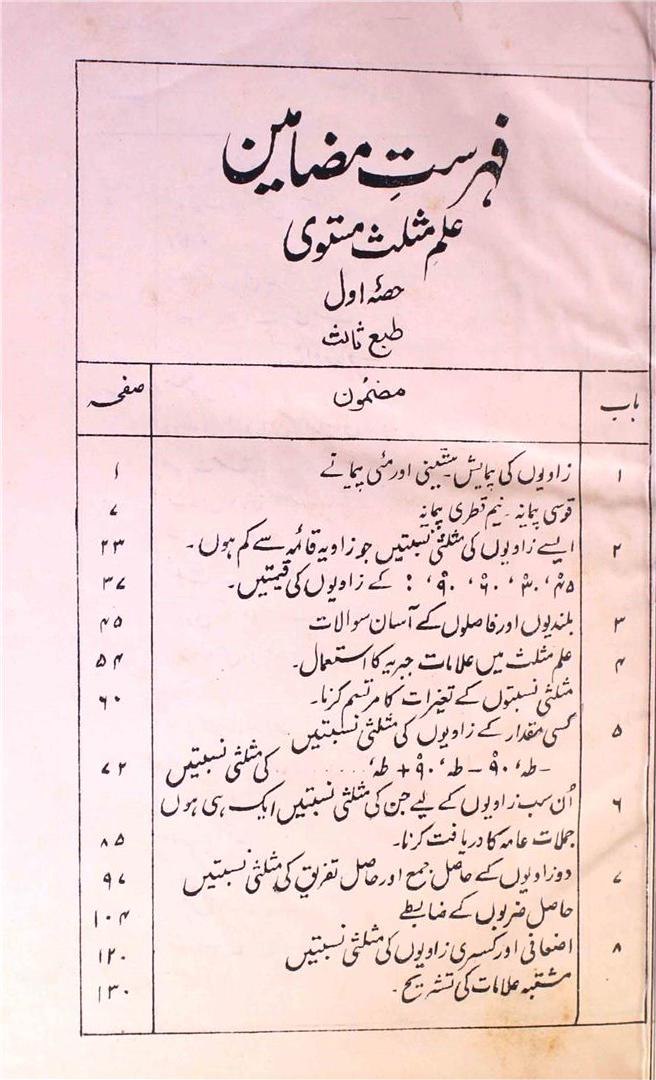 فہرستِ مضامین
علمِ مثلث مستوی
حصۂ اول
طبع ثالث
باب مضمون صفحہ
۱ زاویوں کی پیمایش۔ ستینی اور مئی پیمانے ۱
قوسی پیمانہ۔ نیم قطری پیمانہ ۷
۲ ایسے زاویوں کی مثلثی نسبتیں جو زاویہ قائمہ سے کم ہوں۔ ۲۳
۴۵ْ، ۳۰ْ، ۶۰ْ، ۹۰ْ، ۰ْ کے زاویوں کی قیمتیں۔ ۳۷
۳ بلندیوں اور فاصلوں کے آسان سوالات ۴۵
۴ علم مثلث میں علامات جبریہ کا استعمال۔ ۵۴
مثلثی نسبتوں کے تغیرات کا مرتسم کرنا۔ ۶۰
۵ کسی مقدار کے زاویوں کی مثلثی نسبتیں
-طہ، ۹۰ْ - طہ، ۹۰ْ + طہ، ........ کی مثلثی نسبتیں ۷۲
۶ اُن سب زاویوں کے لیے جن کی مثلثی نسبتیں ایک ہی ہوں
جملات عامہ کا دریافت کرنا۔ ۸۵
۷ دو زاویوں کے حاصل جمع اور حاصل تفریق کی مثلثی نسبتیں ۹۷
حاصل ضربوں کے ضابطے ۱۰۴
۸ اضعافی اور کسری زاویوں کی مثلثی نسبتیں ۱۲۰
مشتبہ علامات کی تشریح۔ ۱۳۰